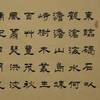 東臨碣石以
觀滄海水何
澹澹山島竦
峙樹木叢生
百草豐茂秋
風蕭瑟洪波